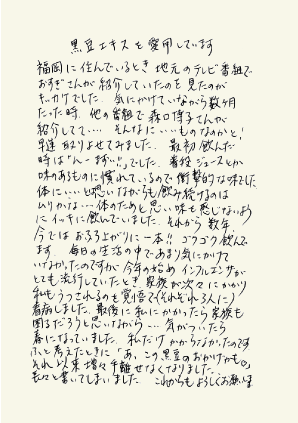 黒豆エキスを愛用しています
福岡に住んでいるとき地元のテレビ番組で
おすぎさんが紹介していたのを見たのが
キッカケでした。気にかけていながら数ヶ月
たった時、他の番組で森口博子さんが
紹介してて…そんなに…いいものなのかと!
早速取りよせてみました。最初飲んだ
時は「んーまずい!!」でした。普段ジュースとか
味のあるものに慣れているので衝撃的な味でした
体にいい…と思いながらも飲み続けるのは
ムリかな…体のためと思い味も感じないよう
にイッキに飲んでいました。それから数年、
今ではおふろ上がりに一本!!ゴクゴク飲んで
ます。毎日の生活の中であまり気にかけて
いなかったのですが今年の始めインフルエンザが
とても流行していたとき家族が次々にかかり
私もうつされるのも覚悟で(それぞれ3人に)
看病しました。最後に私にかかったら家族も
困るだろうと思いながら…気がついたら
春になっていました。私だけかからなかったのです
ふと考えたときに「あ、この黒豆のおかげかも。」
それ以来増々手離せなくなりました。
長々と書いてしまいました。これからもよろしくお願いします